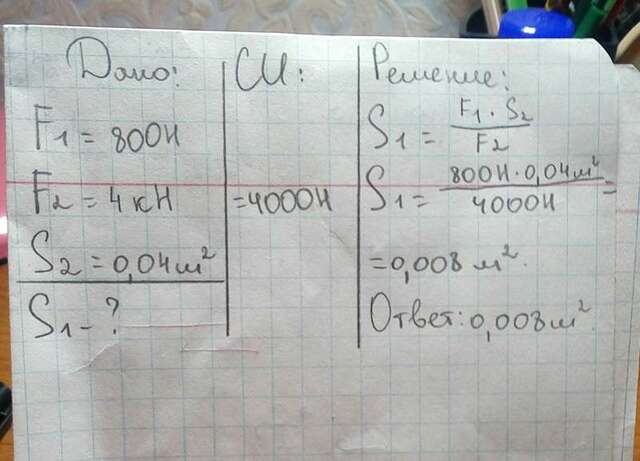 Дано:
F1 = 800Н
F2 = 4 кН
S2 = 0,04 м²
S1 - ?
СИ:
=4000Н
Решение:
S1 = F1 · S2 / F2
S1 = 800Н · 0,04 м² / 4000Н =
=0,008 м².
Ответ: 0,008 м².